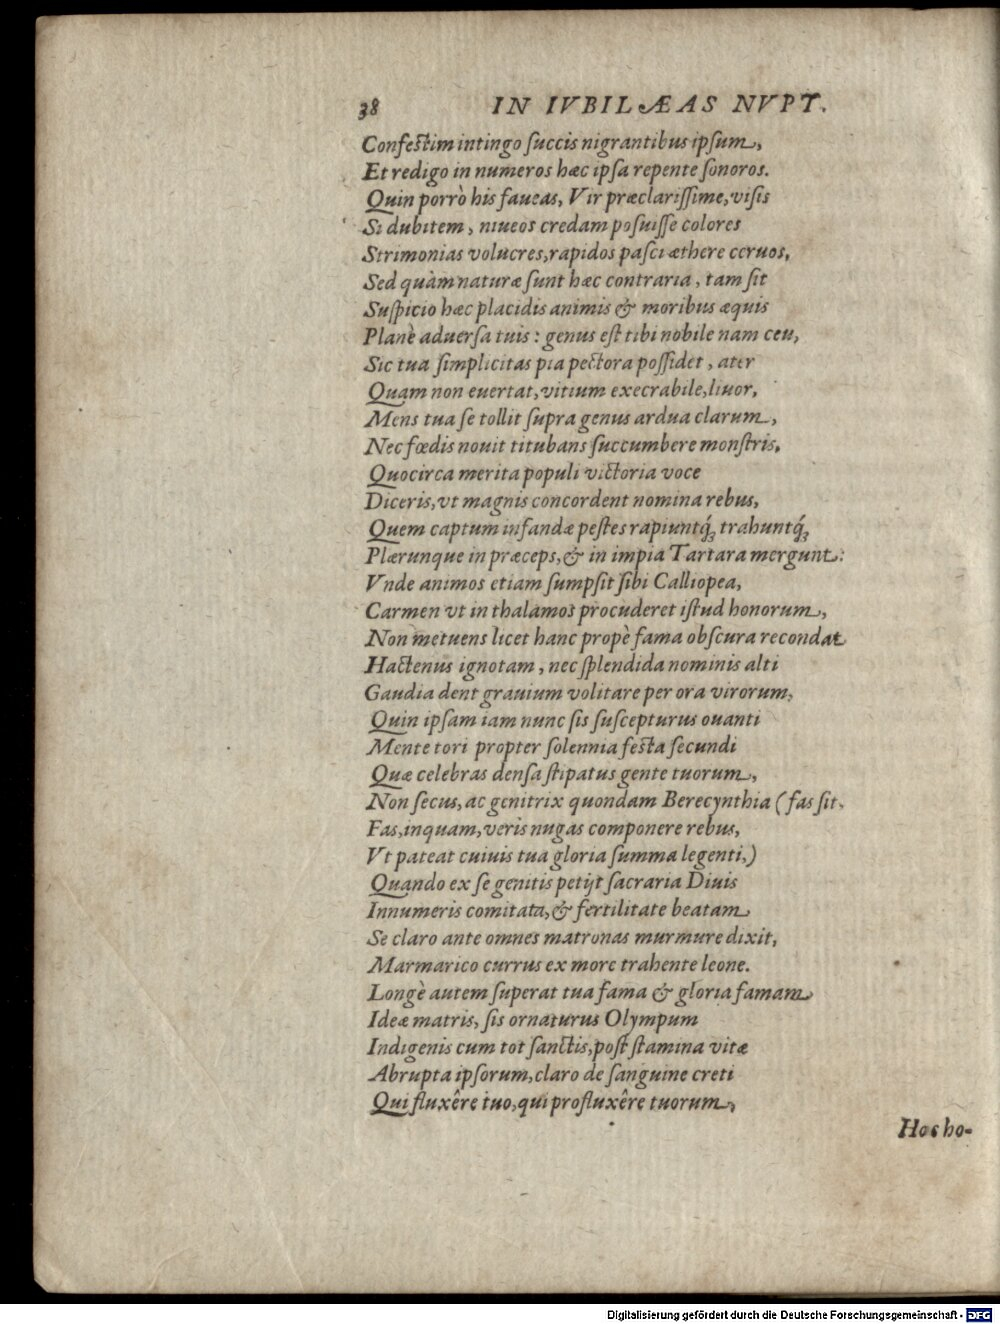 38 IN IVBILÆAS NVPT.
Confestim intingo succis nigrantibus ipsum,
Et redigo in numeros hæc ipsa repente sonoros.
Quin porrò his faueas, Vir præclarissime, visis
Si dubitem, niueos credam posuisse colores
Strimonias volucres, rapidos pasci æthere ceruos,
Sed quàm naturæ sunt hæc contraria, tam sit
Suspicio hæc placidis animis & moribus æquis
Planè aduersa tuis: genus est tibi nobile nam ceu,
Sic tua simplicitas pia pectora possidet, ater
Quam non euertat, vitium execrabile, liuor,
Mens tua se tollit supra genus ardua clarum,
Nec fœdis nouit titubans succumbere monstris,
Quocirca merita populi victoria voce
Diceris, vt magnis concordent nomina rebus,
Quem captum infandæ pestes rapiuntq́; trahuntq́;
Plærunque in præceps, & in impia Tartara mergunt:
Vnde animos etiam sumpsit sibi Calliopea,
Carmen vt in thalamos procuderet istud honorum,
Non metuens licet hanc propè fama obscura recondat
Hactenus ignotam, nec splendida nominis alti
Gaudia dent grauium volitare per ora virorum,
Quin ipsam iam nunc sis suscepturus ouanti
Mente tori propter solennia festa secundi
Quæ celebras densa stipatus gente tuorum,
Non secus, ac genitrix quondam Berecynthia (fas sit,
Fas, inquam, veris nugas componere rebus,
Vt pateat cuiuis tua gloria summa legenti,)
Quando ex se genitis petijt sacraria Diuis
Innumeris comitata, & fertilitate beatam
Se claro ante omnes matronas murmure dixit,
Marmarico currus ex more trahente leone.
Longè autem superat tua fama & gloria famam
Ideæ matris, sis ornaturus Olympum
Indigenis cum tot sanctis, post stamina vitæ
Abrupta ipsorum, claro de sanguine creti
Qui fluxêre tuo, qui profluxêre tuorum,
Hos ho-
Digitalisierung gefördert durch die Deutsche Forschungsgemeinschaft - DFG